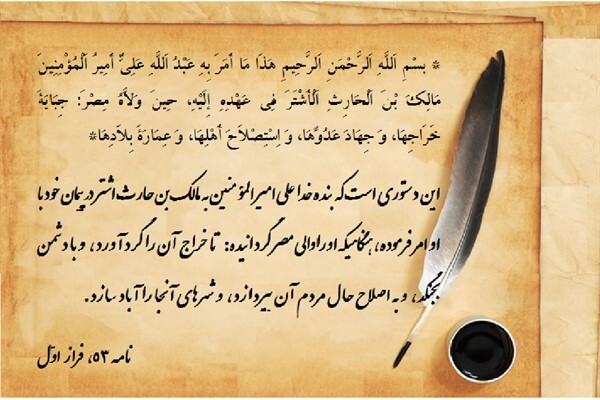 * بِسْمِ اَللَّهِ اَلرَّحْمَنِ اَلرَّحِيمِ هَذَا مَا أَمَرَ بِهِ عَبْدُ اَللَّهِ عَلِيٌّ أَمِيرُ اَلْمُؤْمِنِينَ
مَالِكَ بْنَ اَلْحَارِثِ اَلْأَشْتَرَ فِي عَهْدِهِ إِلَيْهِ، حِينَ وَلاَّهُ مِصْرَ: جِبَايَةَ
خَرَاجِهَا، وَ جِهَادَ عَدُوِّهَا، وَ اِسْتِصْلاَحَ أَهْلِهَا، وَ عِمَارَةَ بِلاَدِهَا*
این دستوری است که بنده خدا علی امیرالمؤمنین به مالک بن حارث اشتر در پیمان خود با
او امر فرموده، هنگامیکه او را والی مصر گردانیده: تا خراج آن را گرد آورد، و با دشمن
بجنگد، و به اصلاح حال مردم آن بپردازد، و شهرهای آنجا را آباد سازد.
نامه ۵۳، فراز اوّل